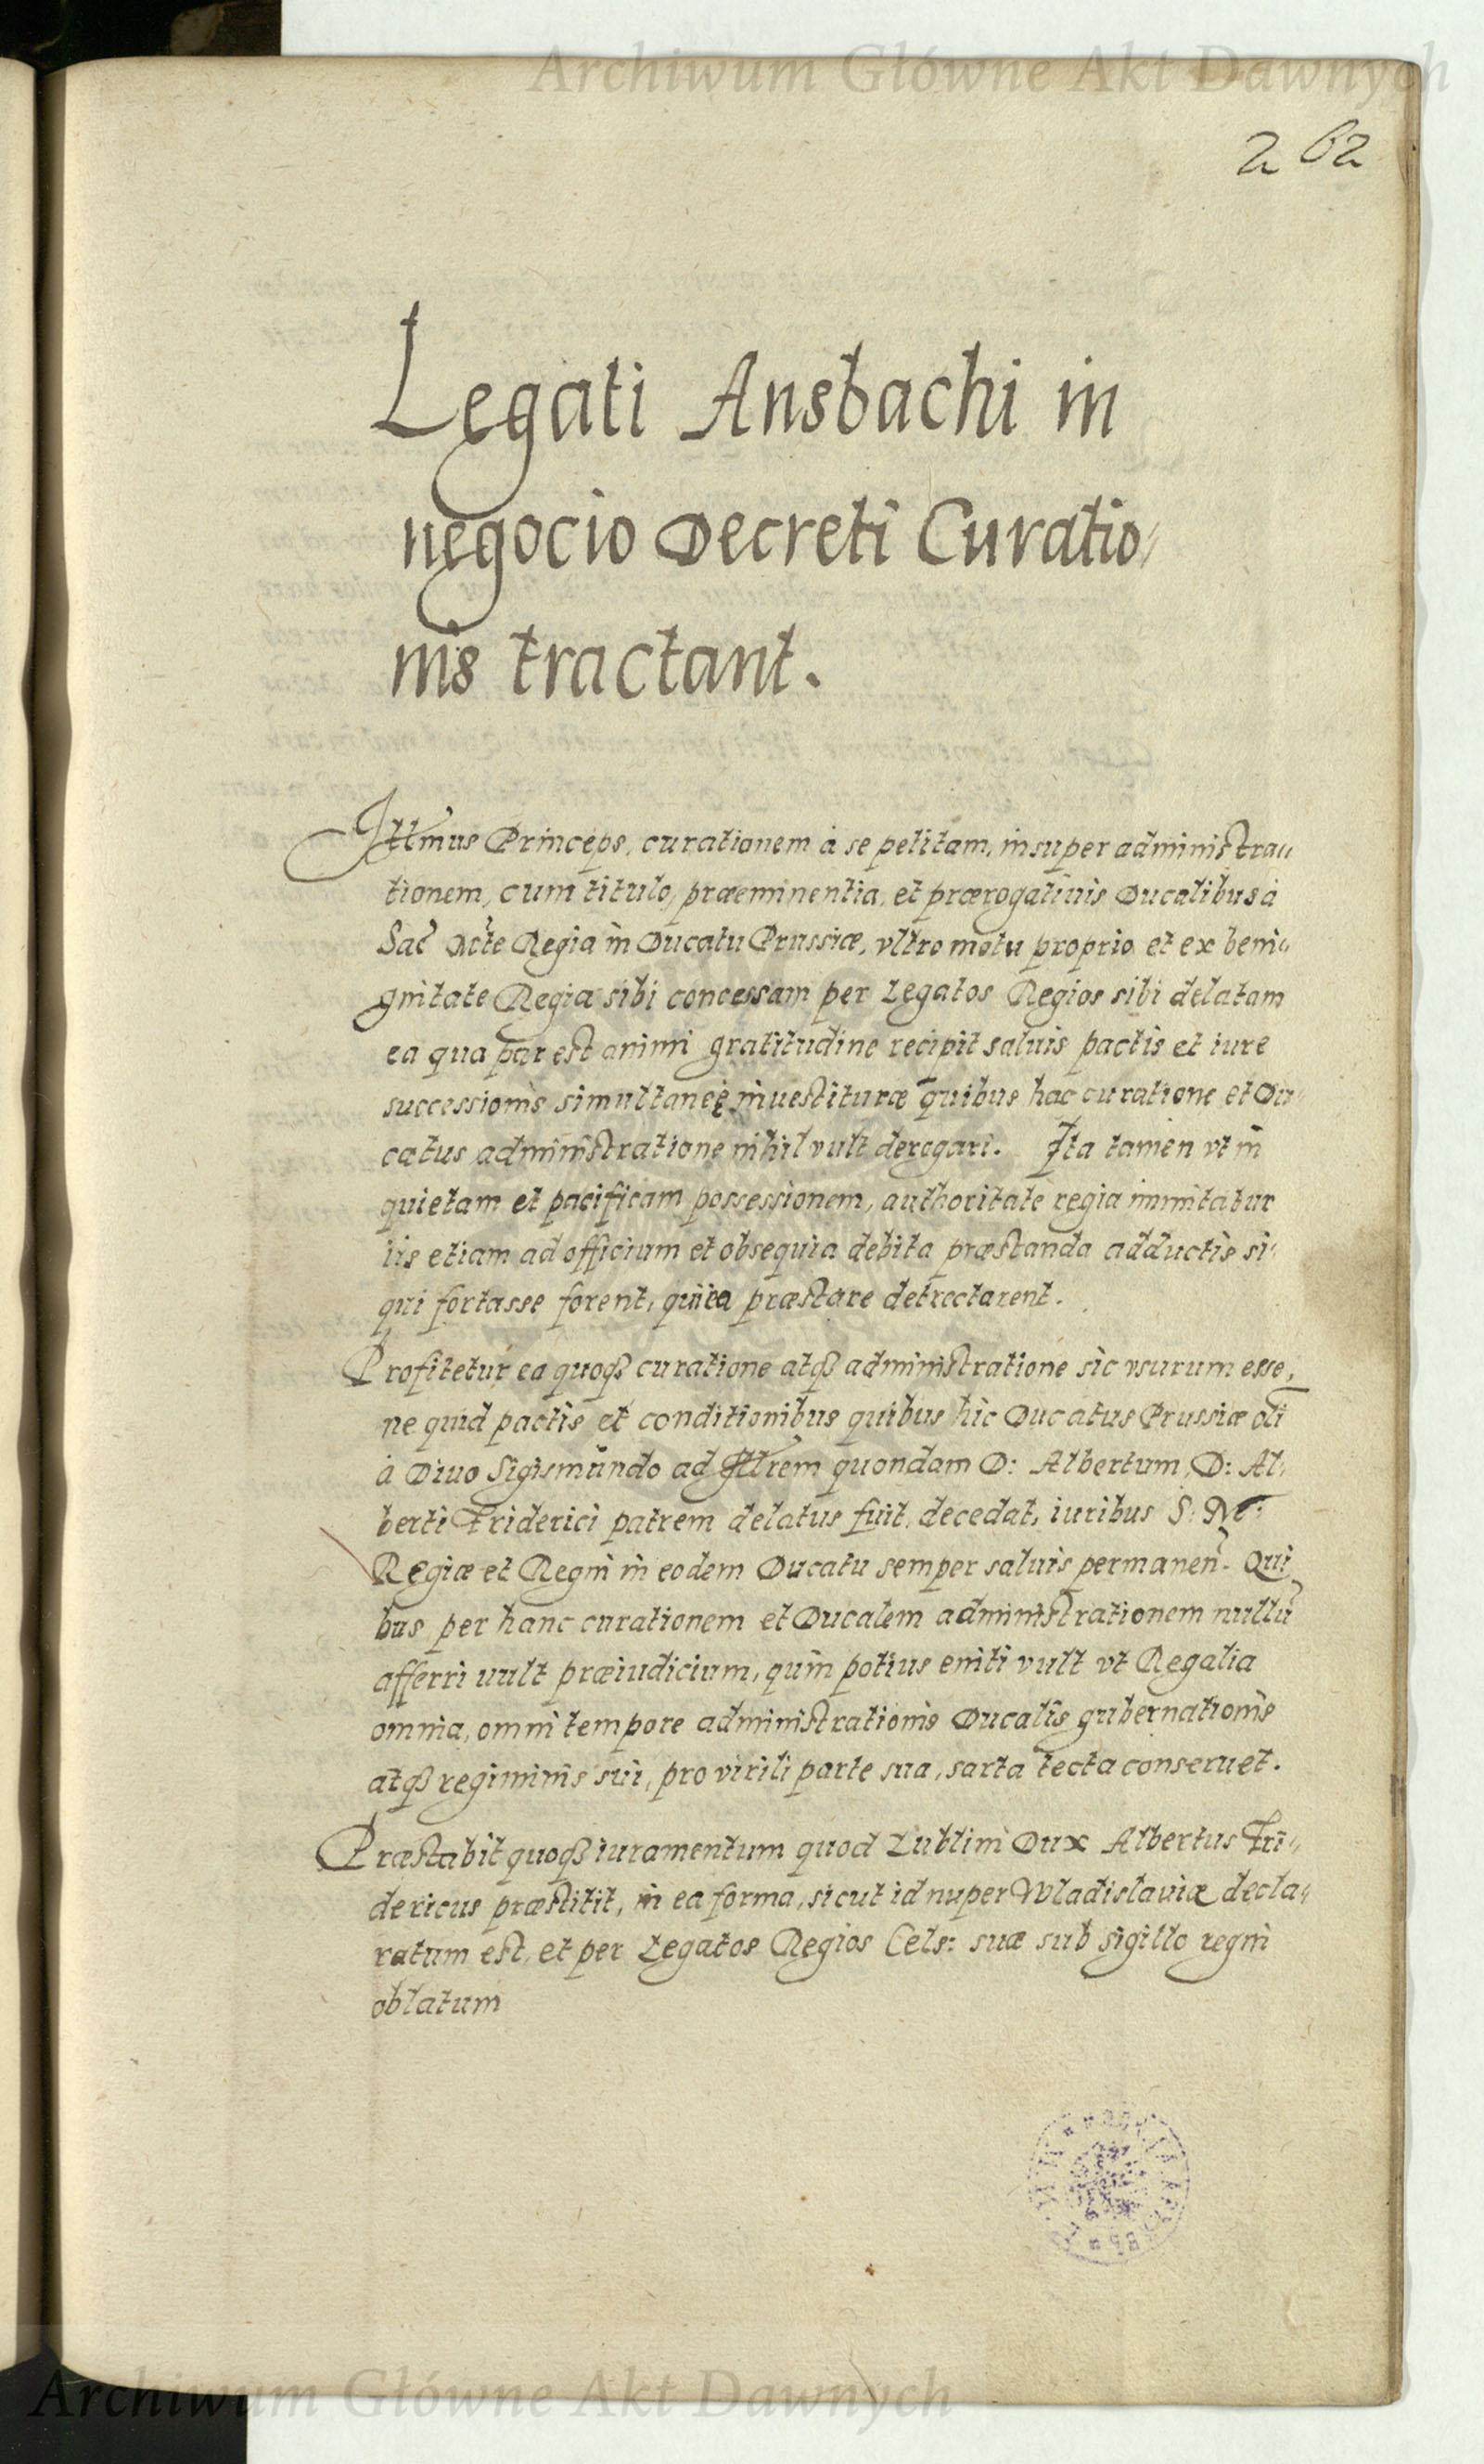 Archiwum Główne Akt Dawnych
2 62
Legati Ansbachi in
negocio Decreti Curatio//
nis tractant.
Illmus Princeps, curationem à se petitam, insuper administra//
tionem, cum titulo, præeminentia, et prærogatiuis Ducalibus à
Sac Mte Regia in Ducatu Prussiæ, vltro motu proprio et ex beni//
gnitate Regia sibi concessam per Legatos Regios sibi delatam
ea qua par est animi gratitudine recipit saluis pactis et iure
successionis simultaneę inuestituræ quibus hac curatione et Du//
catus administratione nihil vult derogari. Ita tamen vt in
quietam et pacificam possessionem, authoritate regia immitatur
iis etiam ad officium et obsequia debita præstanda adductis si//
qui fortasse forent, qui ea præstare detrectarent.
Profitetur ea quoqß curatione atqß administratione sic vsurum esse,
ne quid pactis et conditionibus quibus hic Ducatus Prussiæ oli
à Diuo Sigismundo ad Illrem quondam D: Albertum, D: Al//
berti Friderici patrem delatus fuit, decedat, iuribus S. M
Regiæ et Regni in eodem Ducatu semper saluis permanen. Qui
bus per hanc curationem et Ducalem administrationem nullu
afferri uult præiudicium, quin potius eniti vult vt Regalia
omnia, omni tempore administrationis Ducalis gubernationis
atqß regiminis sui, pro virili parte sua, sarta tecta conseruet.
Præstabit quoqß iuramentum quod Lublini Dux Albertus Fri//
dericus præstitit, in ea forma, sicut id nuper Wladislauiæ decla//
ratum est, et per Legatos Regios Cels: suæ sub sigillo regni
oblatum
Archiwum Główne Akt Dawnych